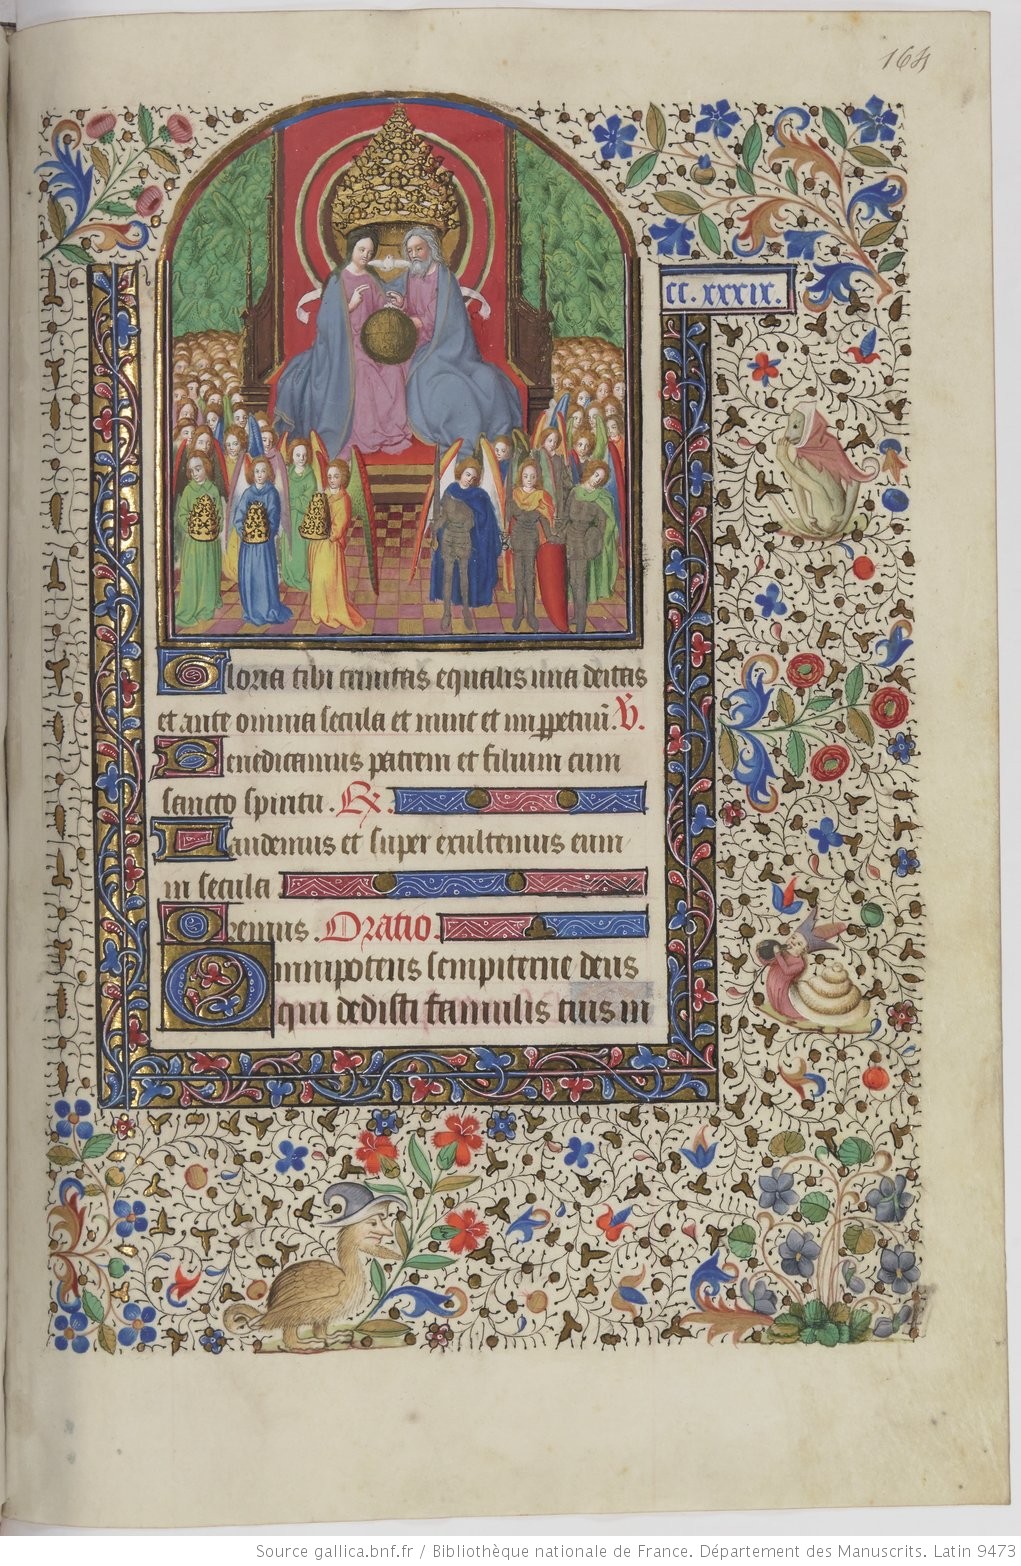 164
cc. xxxix.
Gloria tibi trinitas equalis una deitas
et ante omnia secula et nunc et in ꝑpetuũ. V̊.
Benedicamus patrem et filium cum
sancto spiritu. R̊.
Laudemus et super exultemus eum
in secula
Oremus. Oratio.
Omnipotens sempiterne deus
qui dedisti famulis tuis in
Source gallica.bnf.fr / Bibliothèque nationale de France. Département des Manuscrits. Latin 9473